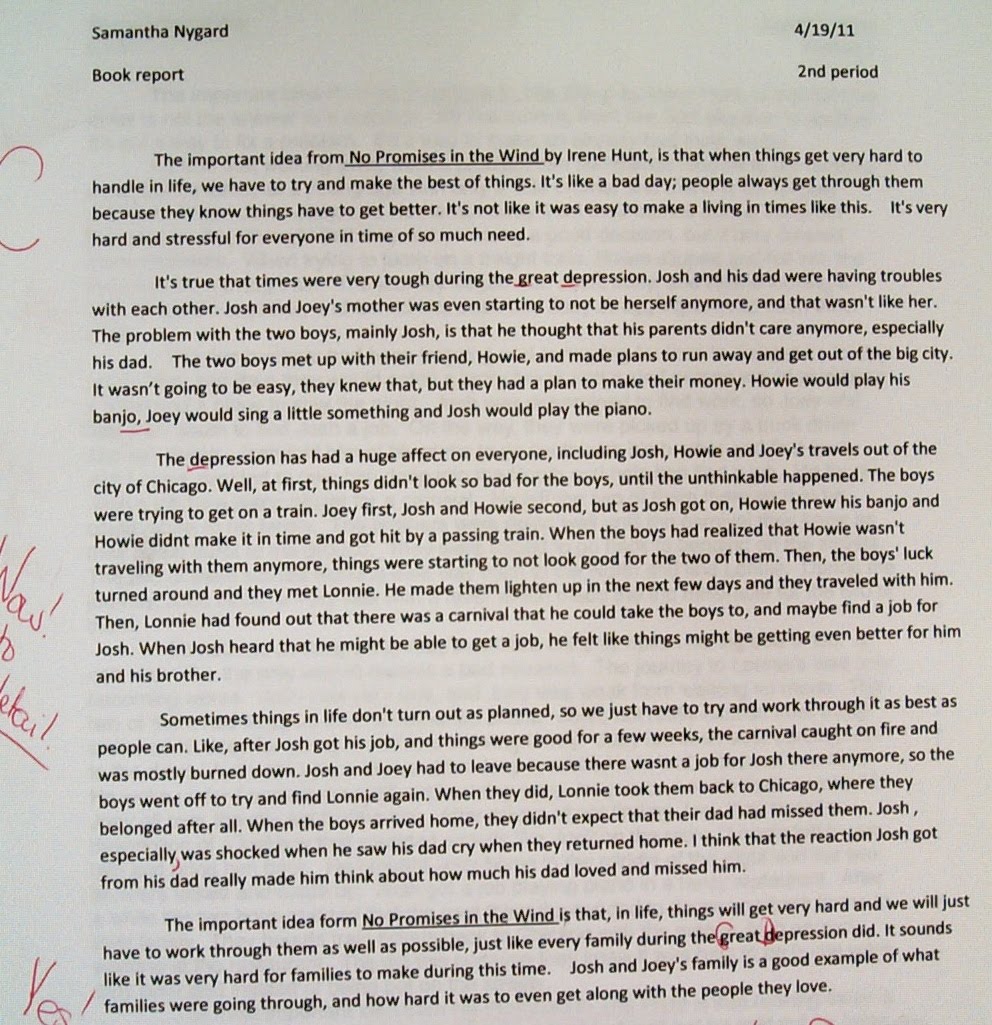 Samantha Nygard 4/19/11
Book report 2nd period
The important idea from No Promises in the Wind by Irene Hunt, is that when things get very hard to
handle in life, we have to try and make the best of things. It's like a bad day; people always get through them
because they know things have to get better. It's not like it was easy to make a living in times like this. It's very
hard and stressful for everyone in time of so much need.
It's true that times were very tough during the great depression. Josh and his dad were having troubles
with each other. Josh and Joey's mother was even starting to not be herself anymore, and that wasn't like her.
The problem with the two boys, mainly Josh, is that he thought that his parents didn't care anymore, especially
his dad. The two boys met up with their friend, Howie, and made plans to run away and get out of the big city.
It wasn't going to be easy, they knew that, but they had a plan to make their money. Howie would play his
banjo, Joey would sing a little something and Josh would play the piano.
The depression has had a huge affect on everyone, including Josh, Howie and Joey's travels out of the
city of Chicago. Well, at first, things didn't look so bad for the boys, until the unthinkable happened. The boys
were trying to get on a train. Joey first, Josh and Howie second, but as Josh got on, Howie threw his banjo and
Howie didnt make it in time and got hit by a passing train. When the boys had realized that Howie wasn't
traveling with them anymore, things were starting to not look good for the two of them. Then, the boys' luck
turned around and they met Lonnie. He made them lighten up in the next few days and they traveled with him.
Then, Lonnie had found out that there was a carnival that he could take the boys to, and maybe find a job for
Josh. When Josh heard that he might be able to get a job, he felt like things might be getting even better for him
and his brother.
Sometimes things in life don't turn out as planned, so we just have to try and work through it as best as
people can. Like, after Josh got his job, and things were good for a few weeks, the carnival caught on fire and
was mostly burned down. Josh and Joey had to leave because there wasnt a job for Josh there anymore, so the
boys went off to try and find Lonnie again. When they did, Lonnie took them back to Chicago, where they
belonged after all. When the boys arrived home, they didn't expect that their dad had missed them. Josh ,
especially, was shocked when he saw his dad cry when they returned home. I think that the reaction Josh got
from his dad really made him think about how much his dad loved and missed him.
The important idea form No Promises in the Wind is that, in life, things will get very hard and we will just
have to work through them as well as possible, just like every family during the great depression did. It sounds
like it was very hard for families to make during this time. Josh and Joey's family is a good example of what
families were going through, and how hard it was to even get along with the people they love.
Yes!